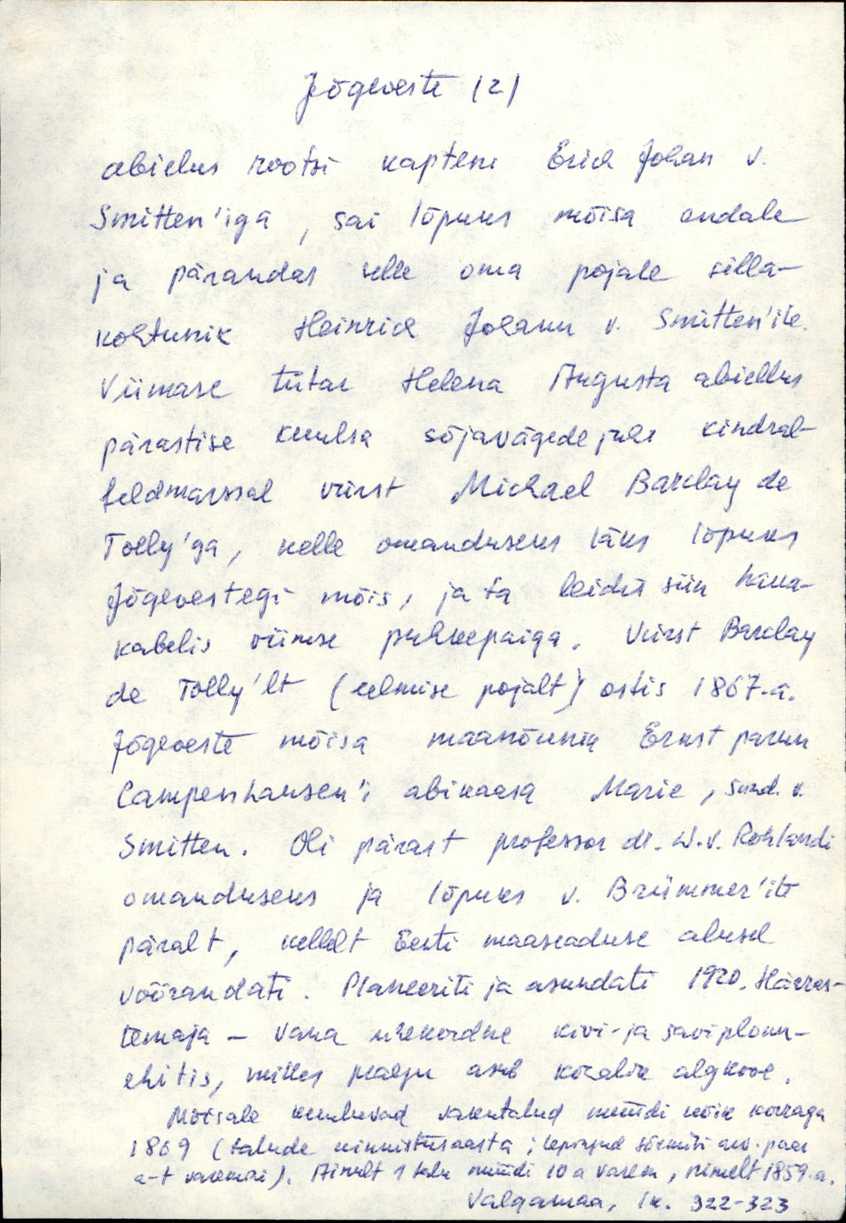 Jõgeveste (2)
abielus rootsi kapteni Erich Johan v.
Smitten'iga, sai lõpuks mõisa endale
ja pärandas selle oma pojale silla-
kohtunik Heinrich Johann v. Smitten'ile.
Viimase tütar Helena Augusta abiellus
pärastise kuulsa sõjavägede juhi kindral-
feldmarssal vürst Michael Barclay de
Tolly'ga, kelle omanduseks läks lõpuks
Jõgevestegi mõis, ja ta leidis siin haua-
kabelis viimse puhkepaiga. Vürst Barclay
de Tolly'lt (eelmise pojalt) ostis 1867.a.
Jõgeveste mõisa maanõuniku Ernst parun
Campenhausen'i abikaasa Marie, sünd. v.
Smitten. Oli pärast professor dr. W.v. Rohlandi
omanduseks ja lõpuks v. Brümmer'ite
päralt, kellelt Eesti maaseaduse alusel
võõrandati. Planeeriti ja asundati 1920. Härras-
temaja – vana ühekordne kivi- ja saviplonn-
ehitis, milles praegu asub kohalik algkool.
Mõisale kuuluvad talud müüdi kõik korraga
1869 (talude kinnistusaasta; lepingud sõlmiti arv. paar
a-t varemini). Ainult 1 talu müüdi 10 a varem, nimelt 1859.a.
Valgamaa, lk. 322-323